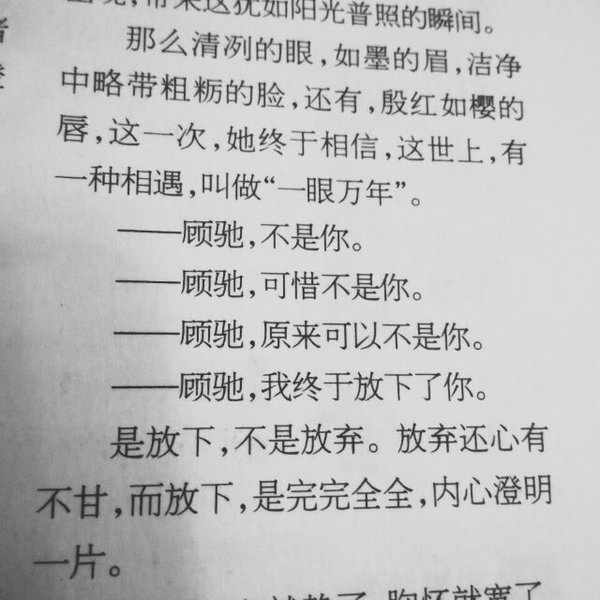 带来这犹如阳光普照的瞬间。
那么清冽的眼,如墨的眉,洁净
中略带粗粝的脸,还有,殷红如樱的
唇,这一次,她终于相信,这世上,有
一种相遇,叫做“一眼万年”。
——顾驰,不是你。
——顾驰,可惜不是你。
——顾驰,原来可以不是你。
——顾驰,我终于放下了你。
是放下,不是放弃。放弃还心有
不甘,而放下,是完完全全,内心澄明
一片。
胸怀就宽了